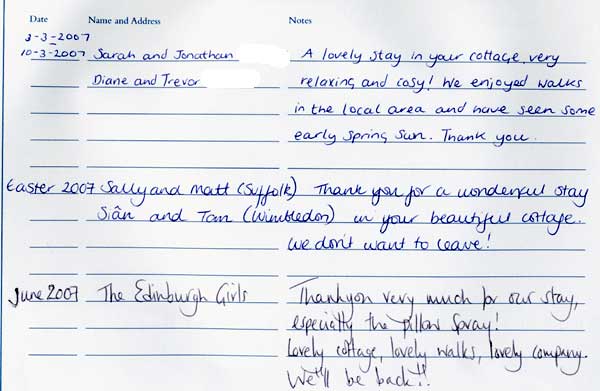 Date Name and Address Notes
3-3-2007
10-3-2007 Sarah and Jonathan A lovely stay in your cottage, very
Diane and Trevor relaxing and cosy! We enjoyed walks
in the local area and have seen some
early spring sun. Thank you.
Easter 2007 Sally and Matt (Suffolk) Thank you for a wonderful stay
Siân and Tom (Wimbledon) in your beautiful cottage..
We don't want to leave!
June 2007 The Edinburgh Girls Thankyou very much for our stay,
especially the pillow spray!
Lovely cottage, lovely walks, lovely company.
We'll be back!!